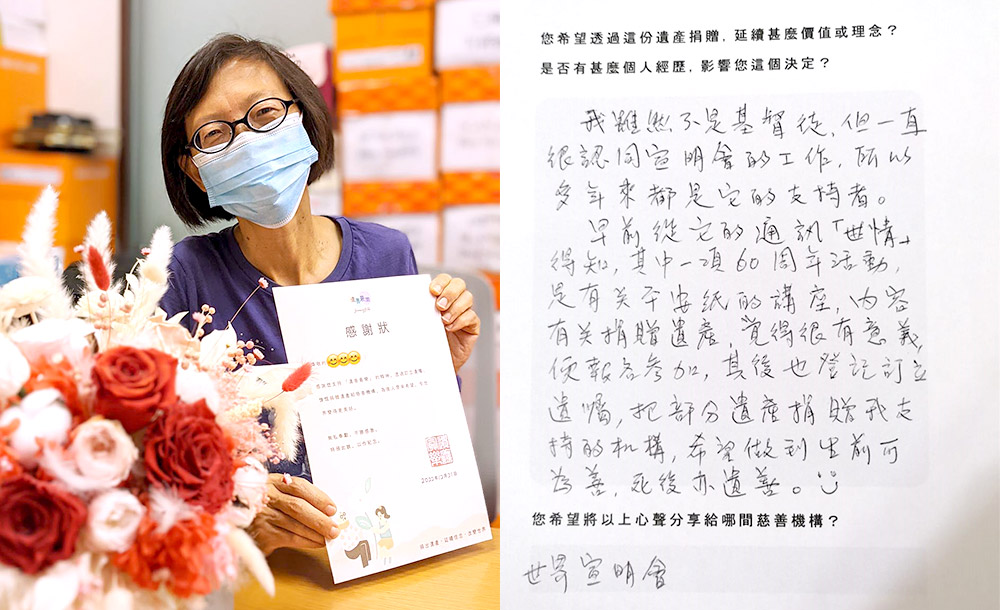 感謝狀
無私奉獻，不勝感激。
特頒此狀，以作紀念。
您希望透過這份遺產捐贈，延續甚麼價值或理念？
是否有甚麼個人經歷，影響您這個決定？
我雖然不是基督徒，但一直
很認同宣明會的工作，所以
多年來都是它的支持者。
早前從它的通訊「世情」
得知，其中一項60周年活動，
是有关平安紙的講座，内容
有关捐贈遺產，覺得很有意義，
便報名參加，其後也登記訂立
遺囑，把部分遺產捐贈我支
持的机構，希望做到生前可
為善，死後亦遺善。
您希望將以上心聲分享給哪間慈善機構？
世界宣明會